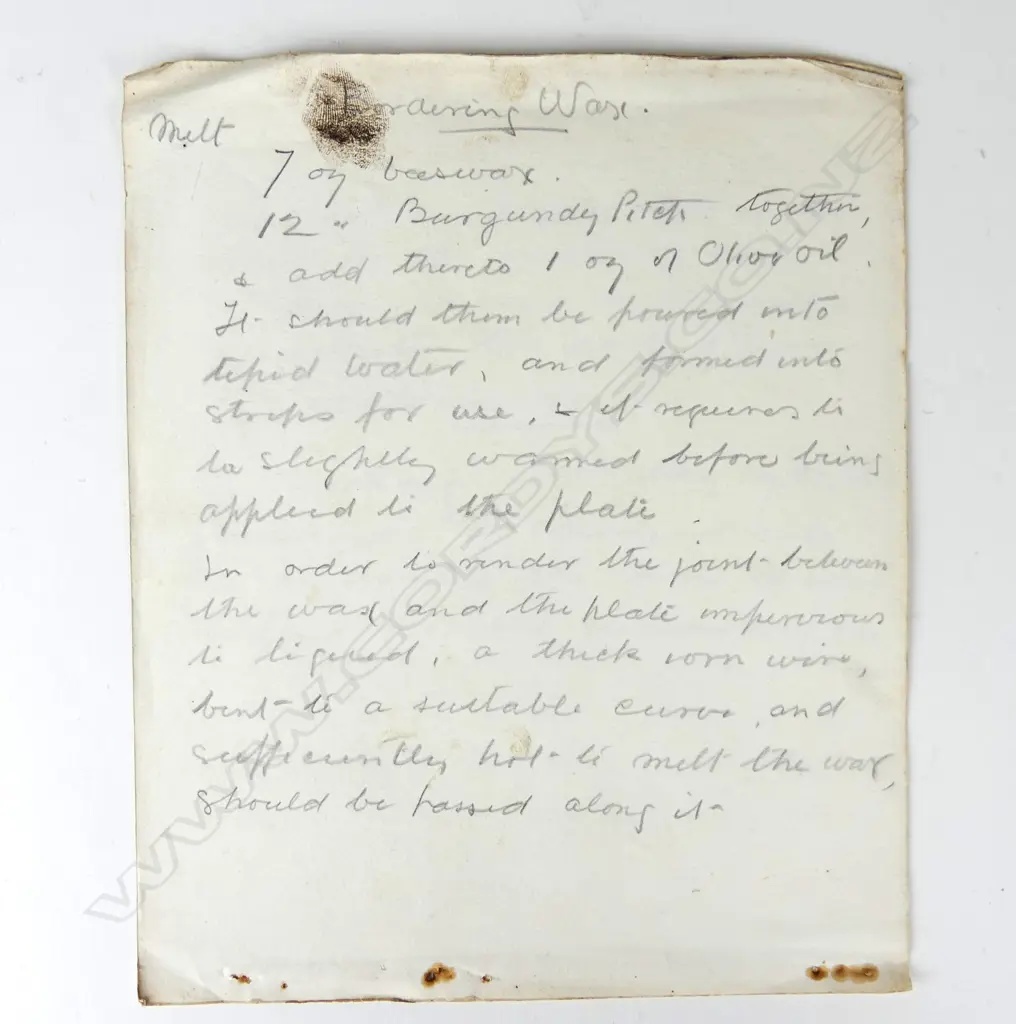 Bordering Wax.
Melt
7 oz beeswax.
12 " Burgundy Pitch together,
& add thereto 1 oz of Olive oil.
It should then be poured into
tepid water, and formed into
strips for use, & it requires to
be slightly warmed before being
applied to the plate.
In order to render the joint between
the wax and the plate impervious
to liquid, a thick iron wire,
bent to a suitable curve, and
sufficiently hot to melt the wax,
should be passed along it